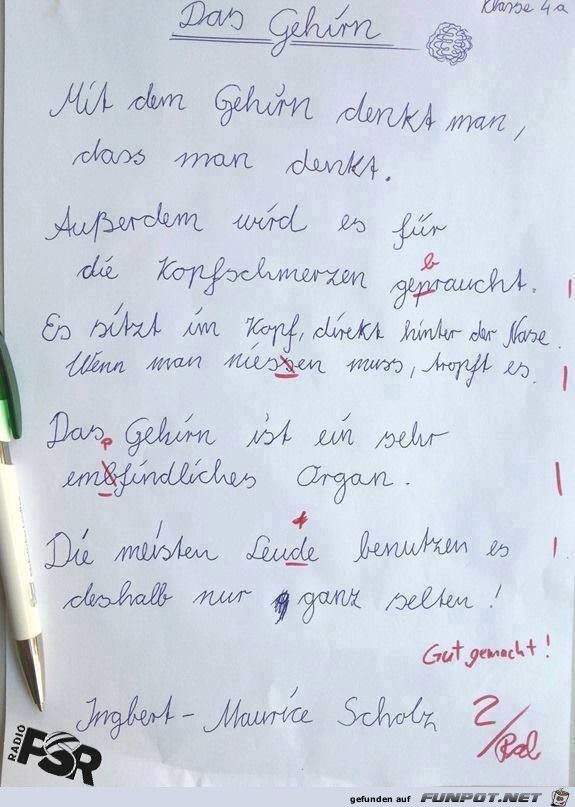 Klasse 4a
Das Gehirn
Mit dem Gehirn denkt man,
dass man denkt.
Außerdem wird es für
b
die Kopfschmerzen gepraucht.
Es sitzt im Kopf, direkt hinter der Nase.
Wenn man niessen muss, tropft es.
Das Gehirn ist ein sehr
p
embfindliches Organ.
t
Die meisten Leude benutzen es
deshalb nur ganz selten!
Gut gemacht!
Ingbert-Maurice Scholz
2
RADIO
PSR
gefunden auf FUNPOT.NET